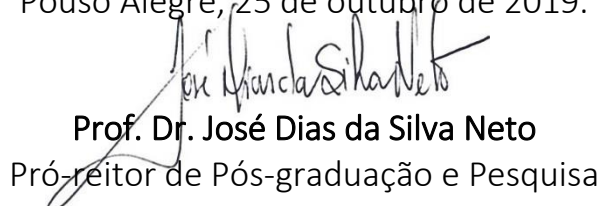 Pouso Alegre, 25 de outubro de 2019.
José Dias da Silva Neto
Prof. Dr. José Dias da Silva Neto
Pró-reitor de Pós-graduação e Pesquisa